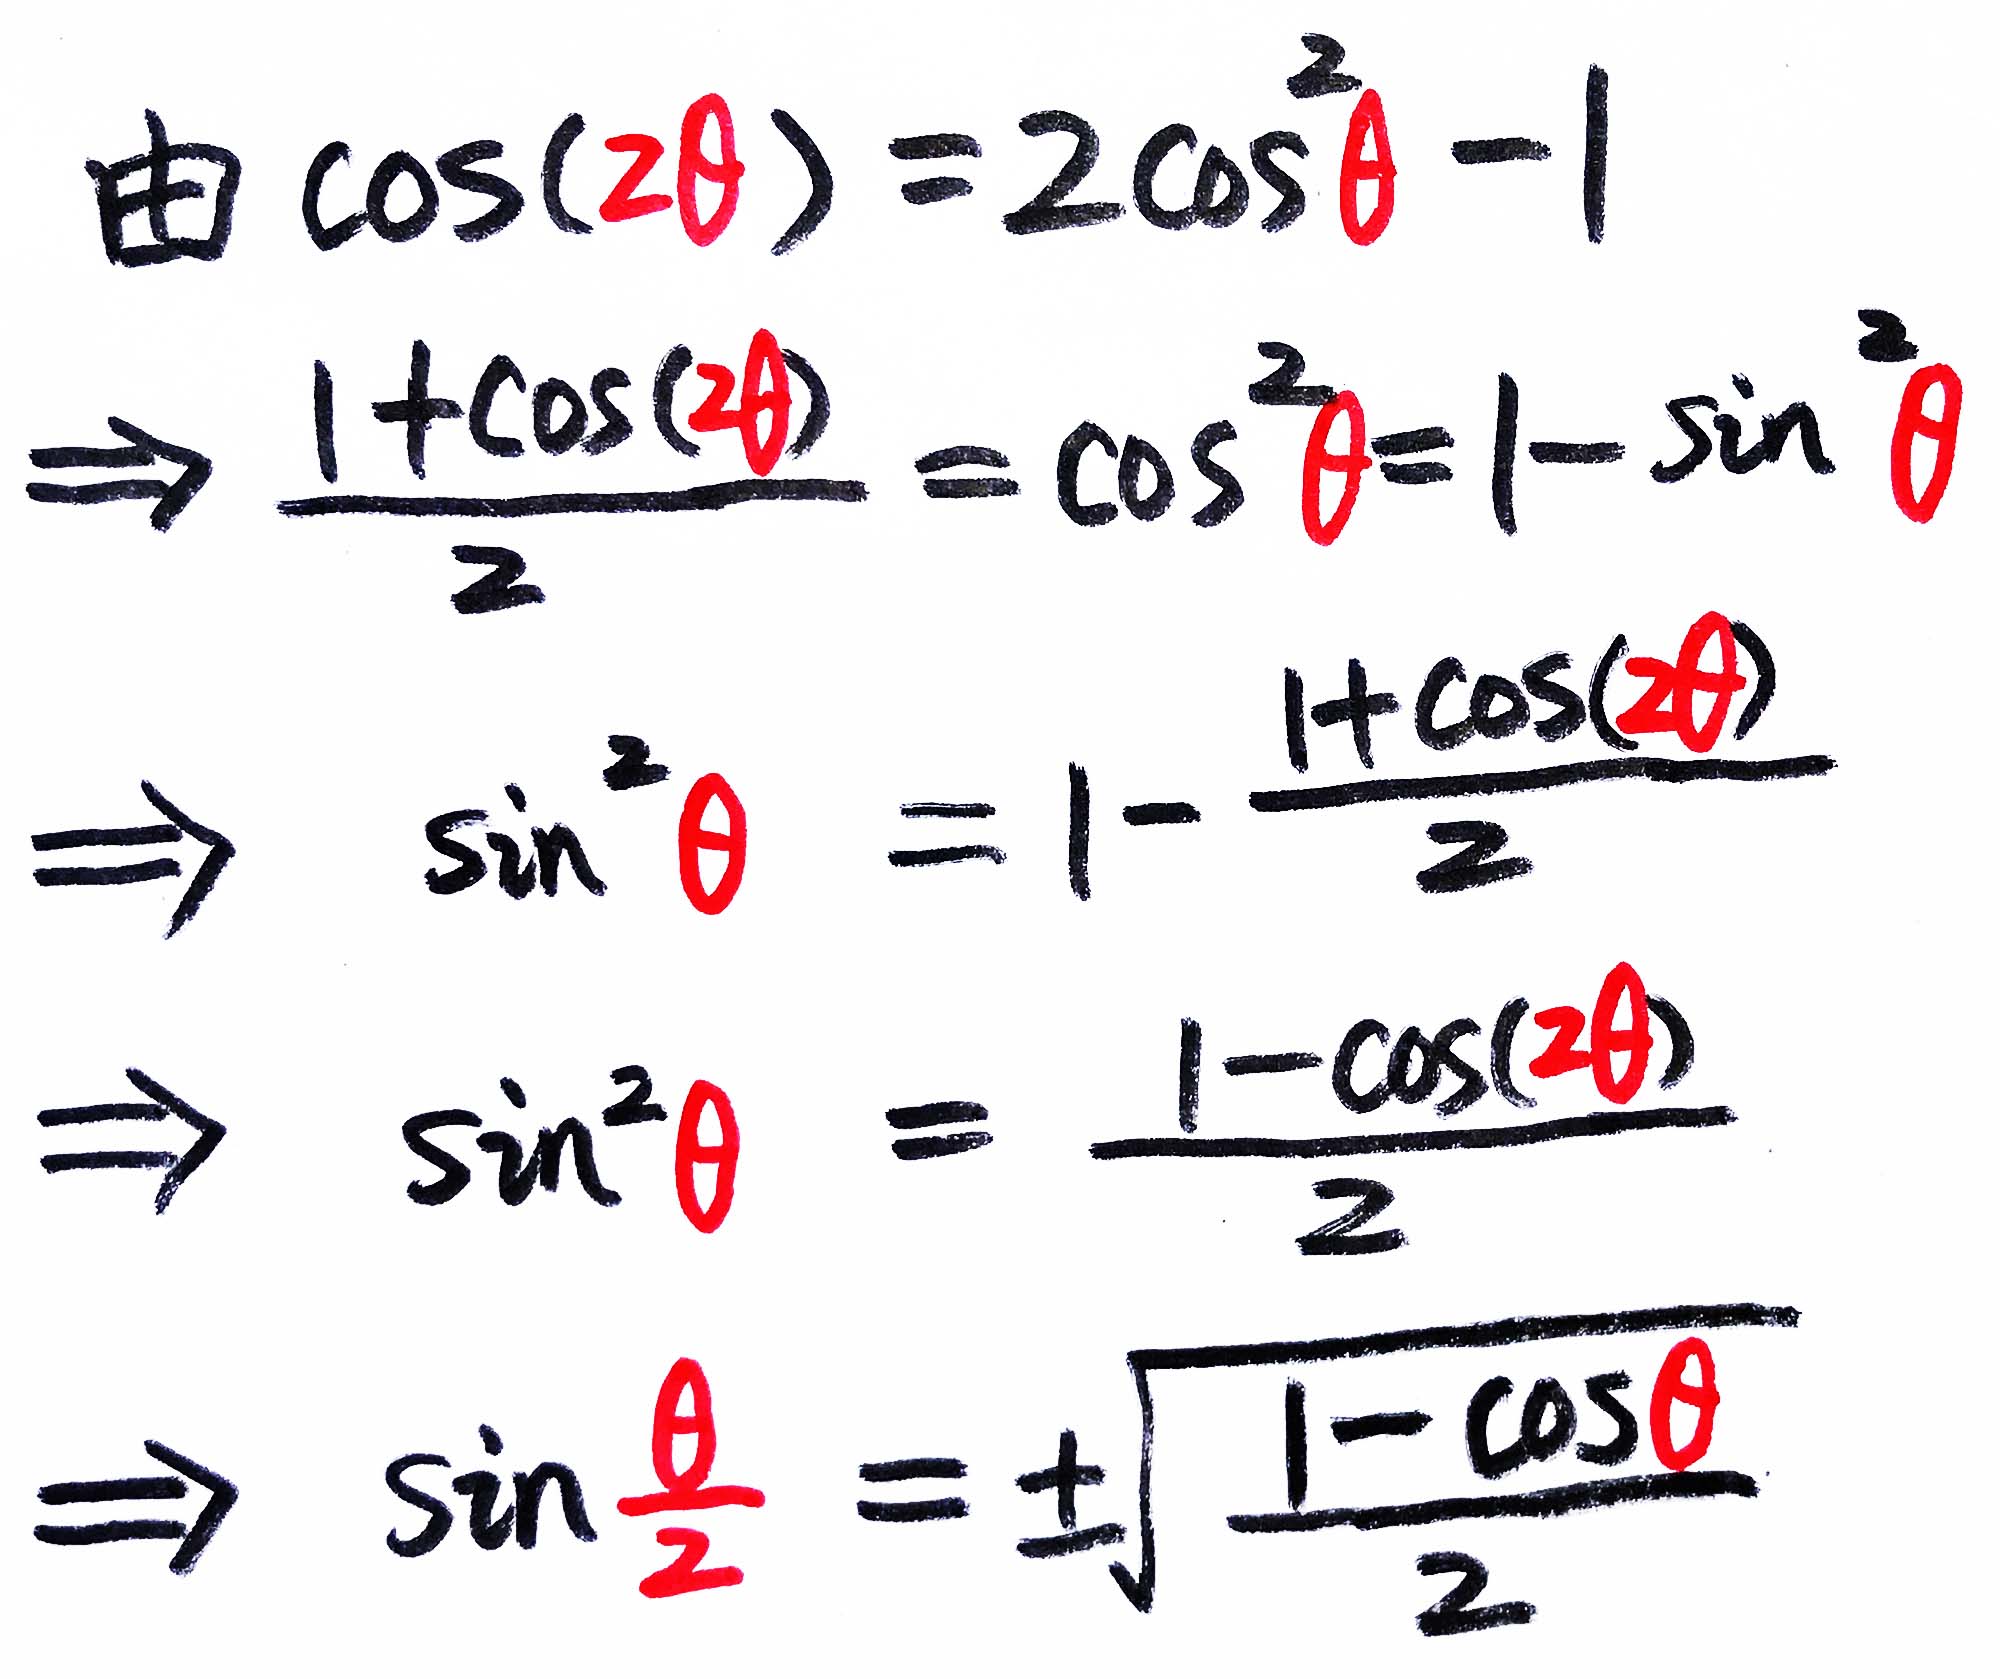 由 cos(2θ) = 2cos²θ - 1
⇒ (1+cos(2θ))/2 = cos²θ = 1 - sin²θ
⇒ sin²θ = 1 - (1+cos(2θ))/2
⇒ sin²θ = (1-cos(2θ))/2
⇒ sin θ/2 = ±√((1-cosθ)/2)